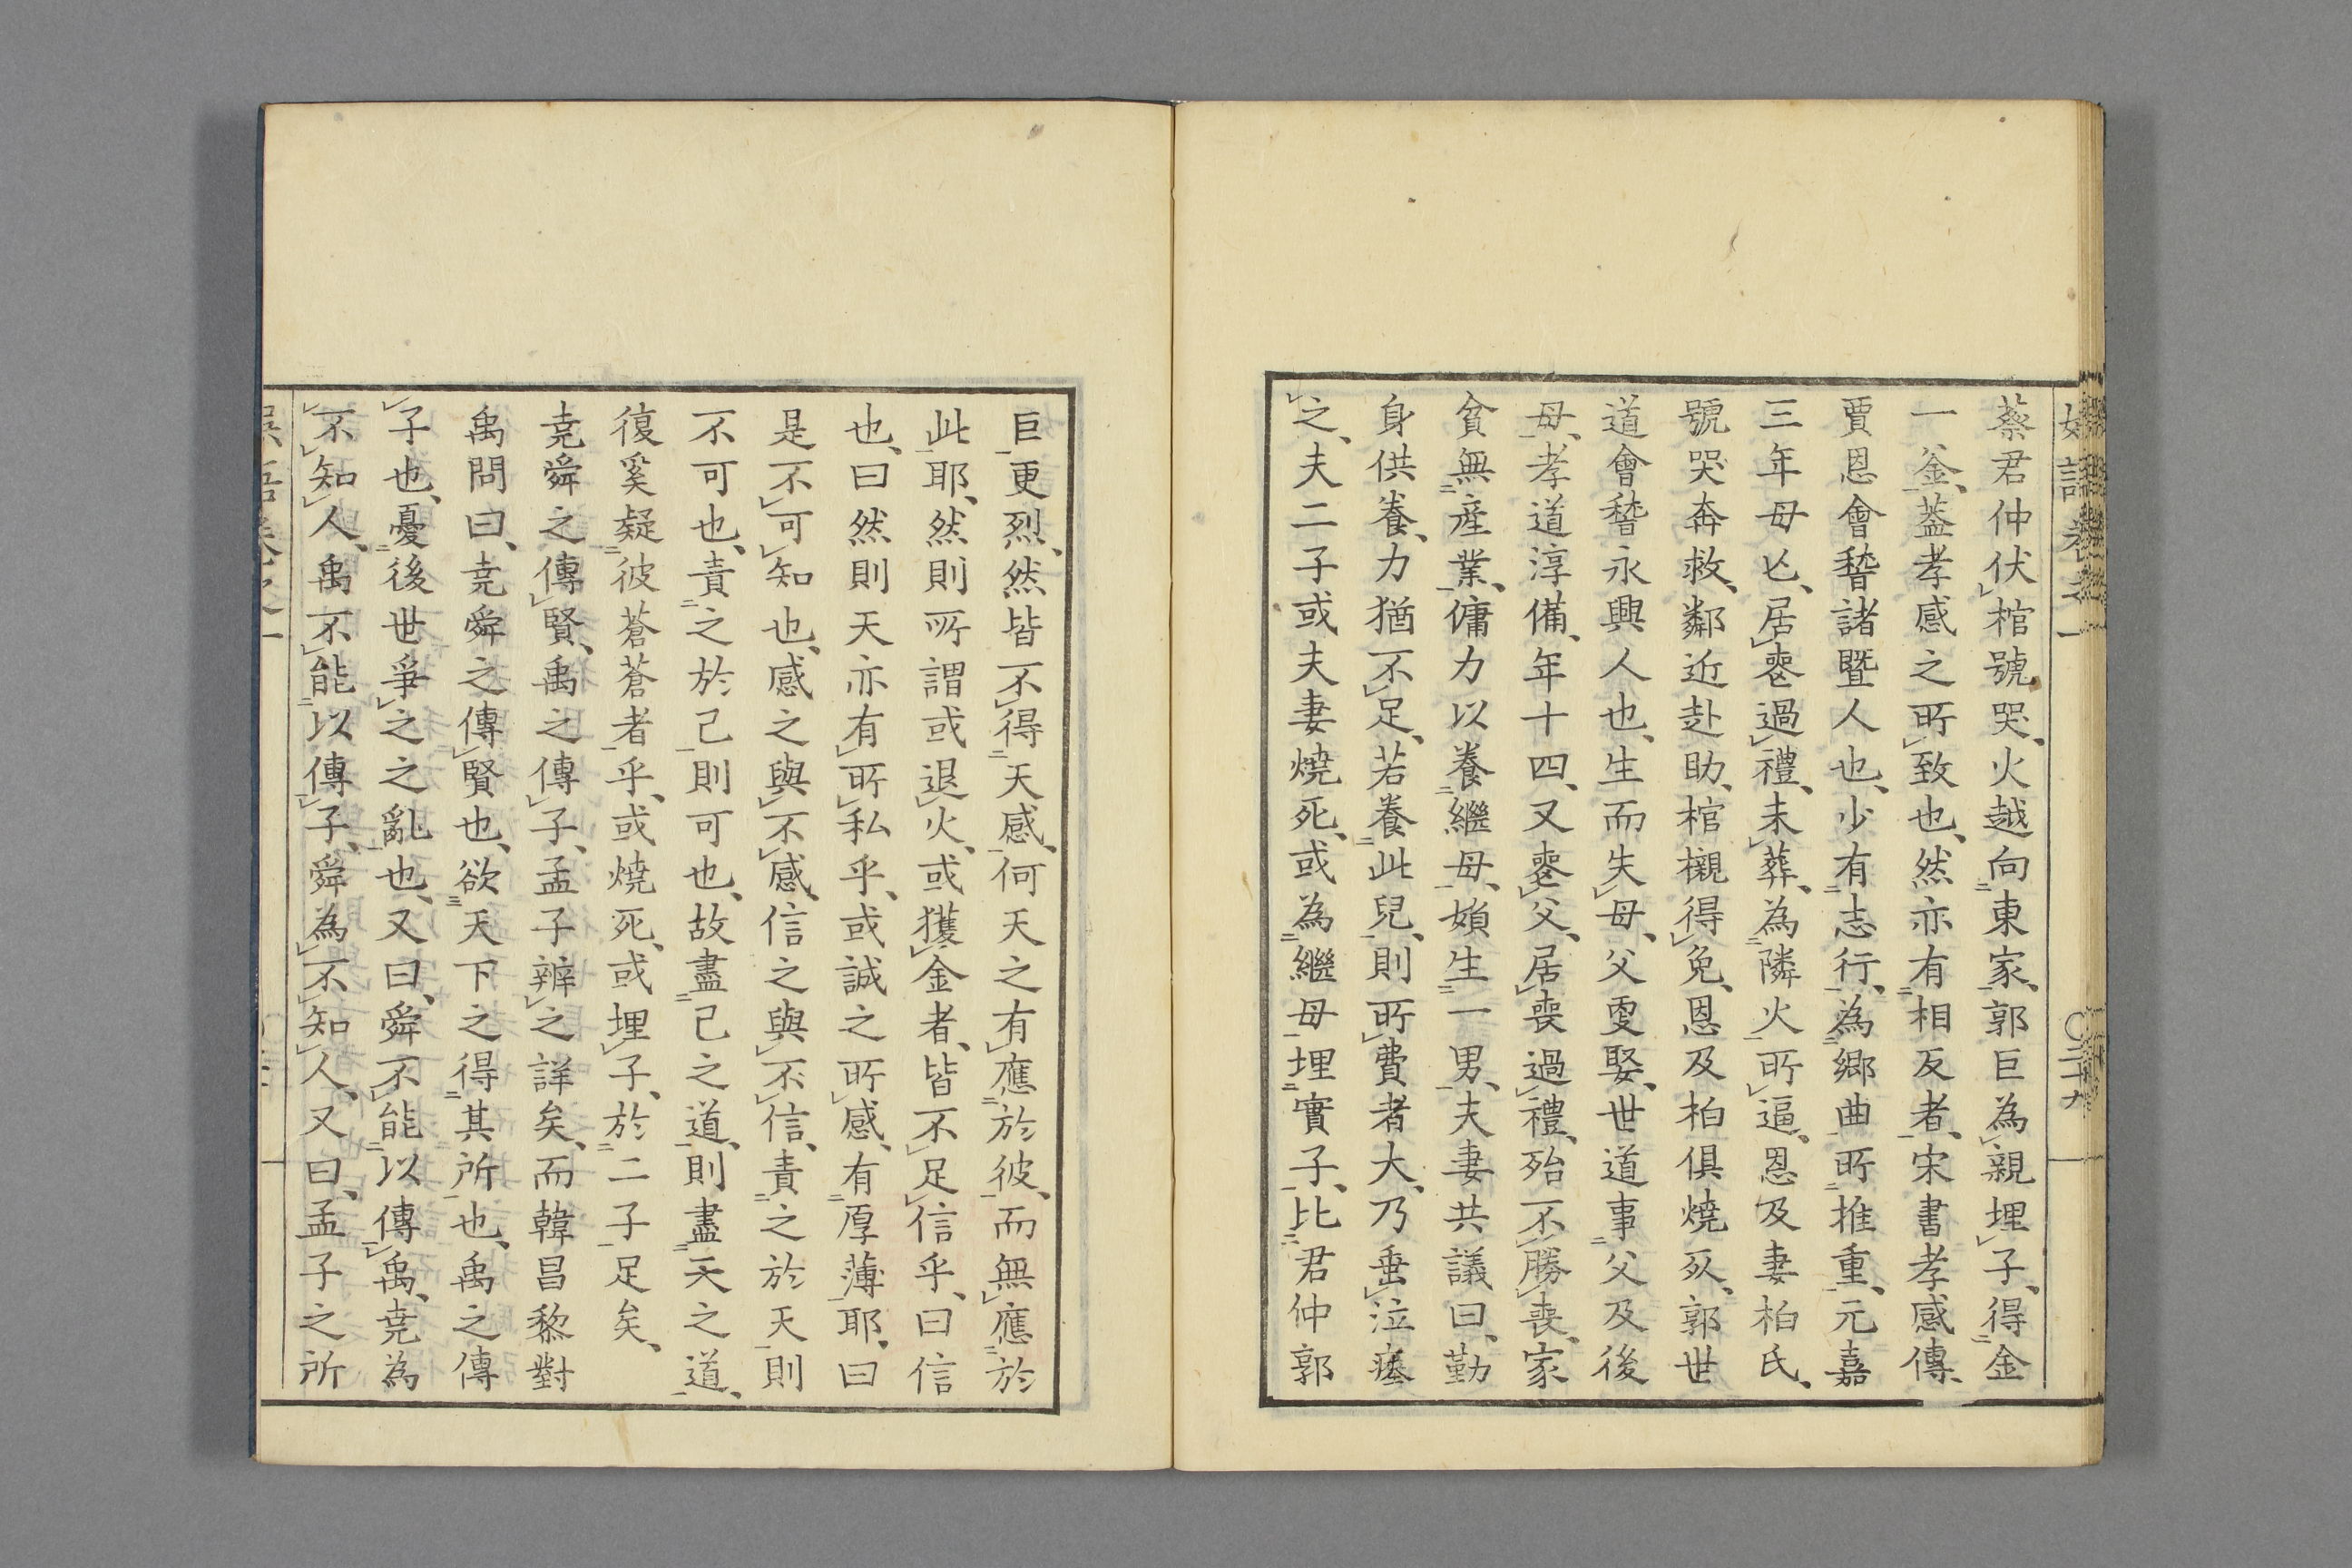 蔡君仲伏棺號哭、火越向東家、郭巨為親埋子、得金
一釜、蓋孝感之所致也、然亦有相反者、宋書孝感傳、
賈恩會稽諸暨人也、少有志行、為鄉曲所推重、元嘉
三年母亡、居喪過禮、未葬、為隣火所逼、恩及妻柏氏、
號哭奔救、鄰近赴助、棺櫬得免、恩及柏俱燒死、郭世
道會稽永興人也、生而失母、父更娶、世道事父及後
母、孝道淳備、年十四、又喪父、居喪過禮、殆不勝喪、家
貧無產業、傭力以養繼母、婦生一男、夫妻共議曰、勤
身供養、力猶不足、若養此兒、則所費者大、乃垂泣瘞
之、夫二子或夫妻燒死、或為繼母埋實子、比君仲郭
巨更烈、然皆不得天感、何天之有應於彼、而無應於
此耶、然則所謂或退火、或獲金者、皆不足信乎、曰信
也、曰然則天亦有所私乎、或誠之所感、有厚薄耶、曰
是不可知也、感之與不感、信之與不信、責之於天則
不可也、責之於己則可也、故盡己之道、則盡天之道、
復奚疑彼蒼蒼者乎、或燒死、或埋子、於二子足矣、
堯舜之傳賢、禹之傳子、孟子辨之詳矣、而韓昌黎對
禹問曰、堯舜之傳賢也、欲天下之得其所也、禹之傳
子也、憂後世爭之之亂也、又曰、舜不能以傳禹、堯為
不知人、禹不能以傳子、舜為不知人、又曰、孟子之所